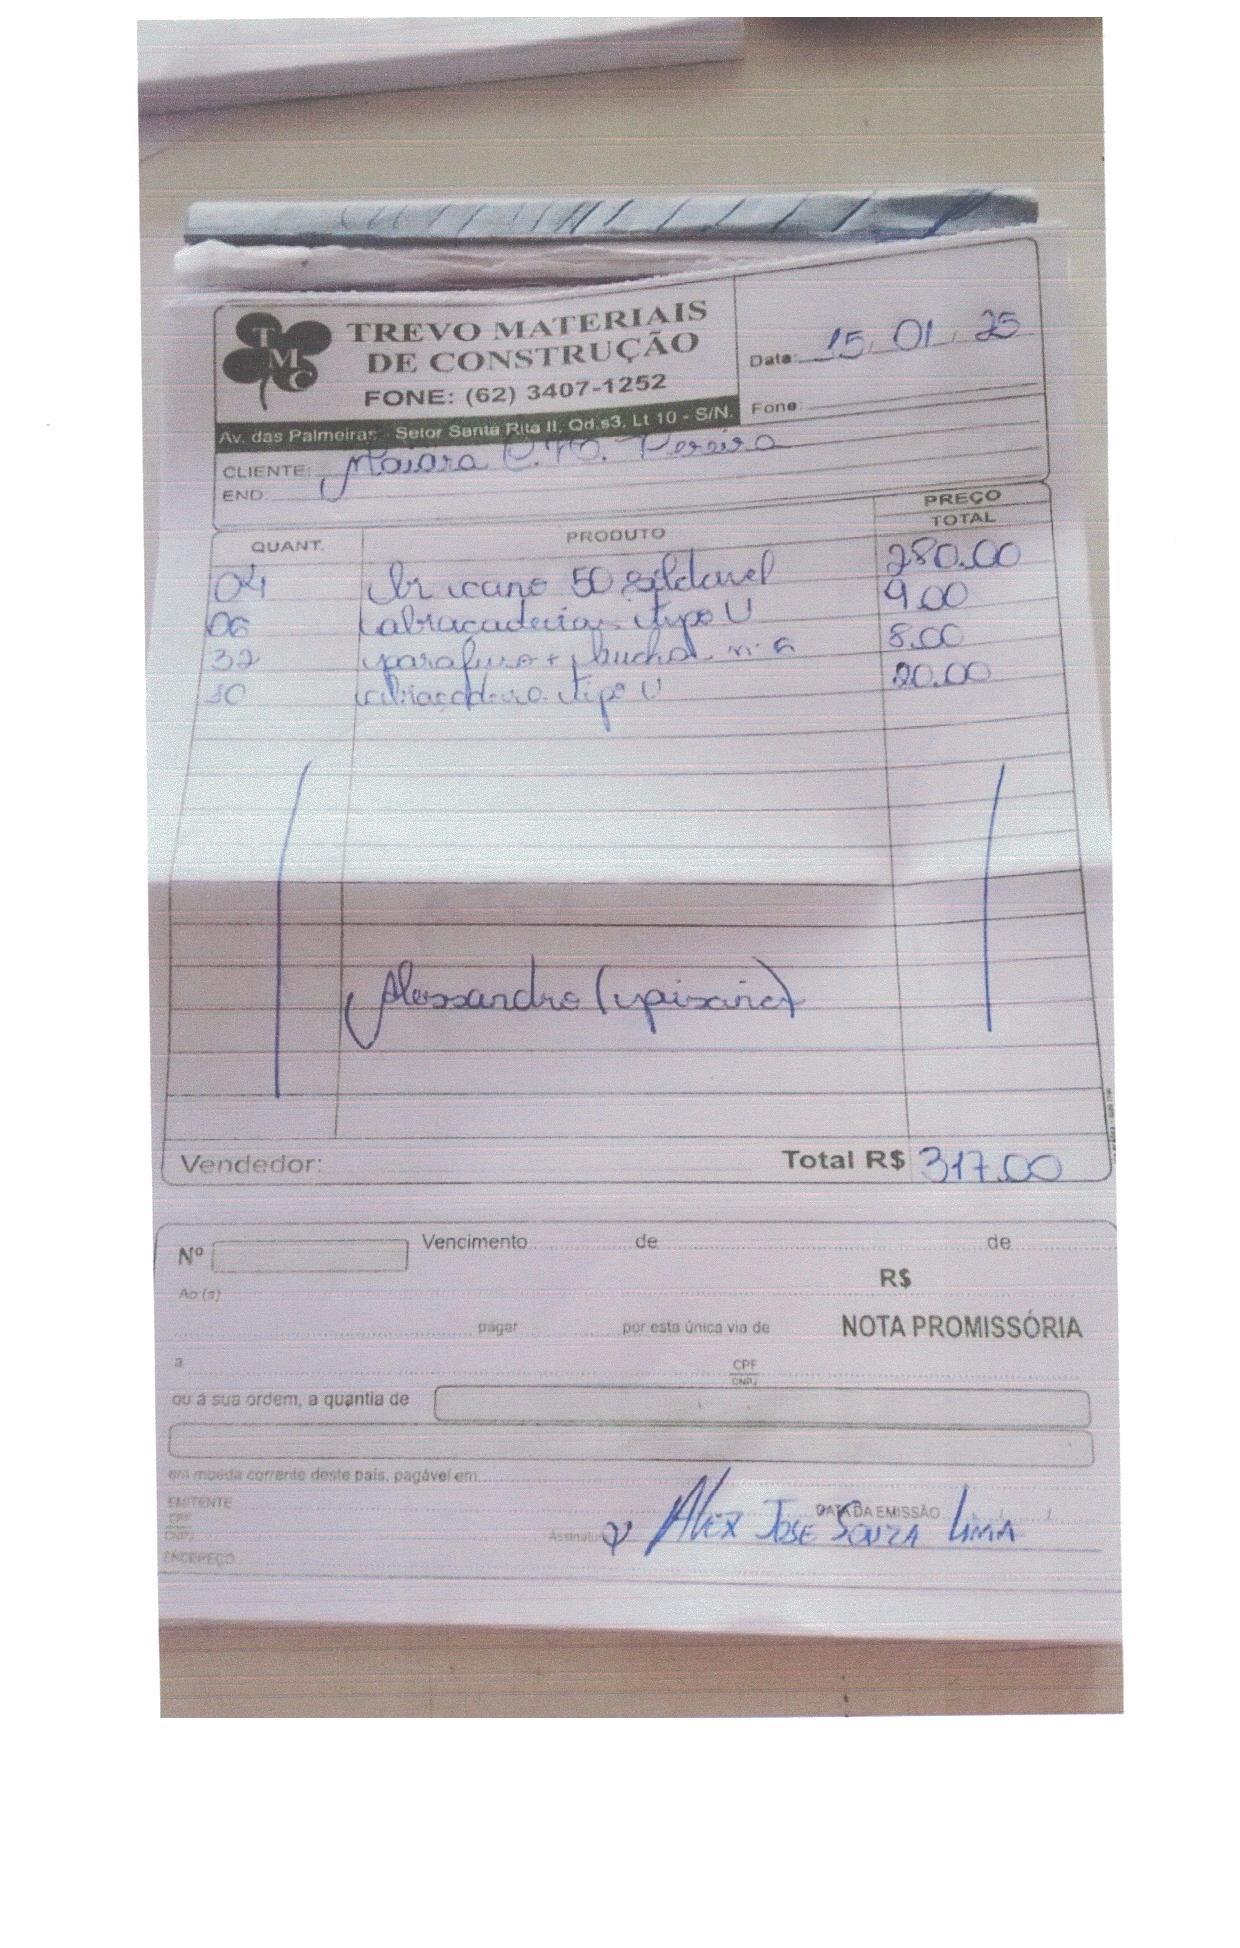 TMC
TREVO MATERIAIS
DE CONSTRUÇÃO
FONE: (62) 3407-1252
Av. das Palmeiras - Setor Santa Rita II, Qd.s3, Lt 10 - S/N.
Data: 15 01 25
Fone:
CLIENTE: Maiara Pereira
END.
QUANT. PRODUTO PREÇO TOTAL
04 br cano 50 soldavel 280.00
06 abraçadeiras tipo U 9.00
32 parafuso + bucha n. 6 8.00
10 abraçadeira tipo U 20.00
Alessandro (piscina)
Vendedor: Total R$ 317.00
Nº Vencimento de de
R$
Ao (s)
pagar por esta única via de NOTA PROMISSÓRIA
a CPF CNPJ
ou à sua ordem, a quantia de
em moeda corrente deste país, pagável em
EMITENTE DATA DA EMISSÃO
CPF
CNPJ Assinatura ALEX JOSE SOUZA LIMA
ENDEREÇO